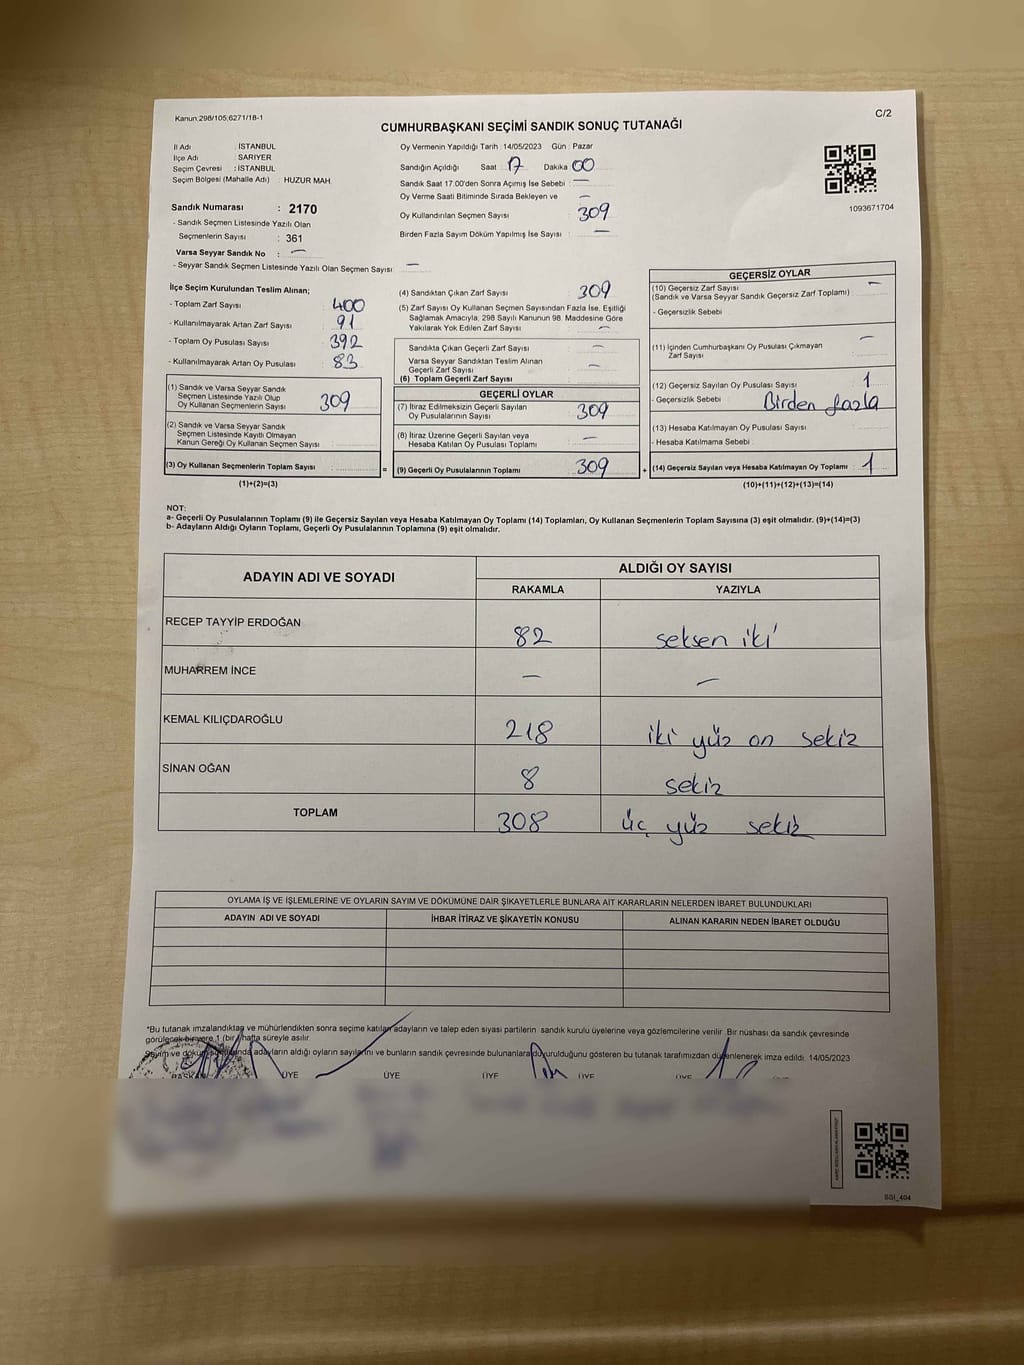 Kanun:298/105;6271/18-1
C/2
CUMHURBAŞKANI SEÇİMİ SANDIK SONUÇ TUTANAĞI
İl Adı : İSTANBUL
İlçe Adı : SARIYER
Seçim Çevresi : İSTANBUL
Seçim Bölgesi (Mahalle Adı) : HUZUR MAH.
Sandık Numarası : 2170
- Sandık Seçmen Listesinde Yazılı Olan
Seçmenlerin Sayısı : 361
Varsa Seyyar Sandık No : —
- Seyyar Sandık Seçmen Listesinde Yazılı Olan Seçmen Sayısı : —
Oy Vermenin Yapıldığı Tarih : 14/05/2023 Gün : Pazar
Sandığın Açıldığı Saat : 17 Dakika : 00
Sandık Saat 17.00'den Sonra Açımış İse Sebebi : —
Oy Verme Saati Bitiminde Sırada Bekleyen ve —
Oy Kullandırılan Seçmen Sayısı : 309
Birden Fazla Sayım Döküm Yapılmış İse Sayısı : —
1093671704
İlçe Seçim Kurulundan Teslim Alınan;
- Toplam Zarf Sayısı : 400
- Kullanılmayarak Artan Zarf Sayısı : 91
- Toplam Oy Pusulası Sayısı : 392
- Kullanılmayarak Artan Oy Pusulası : 83
(1) Sandık ve Varsa Seyyar Sandık
Seçmen Listesinde Yazılı Olup
Oy Kullanan Seçmenlerin Sayısı : 309
(2) Sandık ve Varsa Seyyar Sandık
Seçmen Listesinde Kayıtlı Olmayan
Kanun Gereği Oy Kullanan Seçmen Sayısı :
(3) Oy Kullanan Seçmenlerin Toplam Sayısı :
(1)+(2)=(3)
=
(4) Sandıktan Çıkan Zarf Sayısı : 309
(5) Zarf Sayısı Oy Kullanan Seçmen Sayısından Fazla İse, Eşitliği
Sağlamak Amacıyla; 298 Sayılı Kanunun 98. Maddesine Göre
Yakılarak Yok Edilen Zarf Sayısı : —
Sandıkta Çıkan Geçerli Zarf Sayısı : —
Varsa Seyyar Sandıktan Teslim Alınan
Geçerli Zarf Sayısı : —
(6) Toplam Geçerli Zarf Sayısı :
GEÇERLİ OYLAR
(7) İtiraz Edilmeksizin Geçerli Sayılan
Oy Pusulalarının Sayısı : 309
(8) İtiraz Üzerine Geçerli Sayılan veya
Hesaba Katılan Oy Pusulası Toplamı : —
(9) Geçerli Oy Pusulalarının Toplamı : 309
+
GEÇERSİZ OYLAR
(10) Geçersiz Zarf Sayısı —
(Sandık ve Varsa Seyyar Sandık Geçersiz Zarf Toplamı) :
- Geçersizlik Sebebi :
(11) İçinden Cumhurbaşkanı Oy Pusulası Çıkmayan —
Zarf Sayısı :
(12) Geçersiz Sayılan Oy Pusulası Sayısı : 1
- Geçersizlik Sebebi : Birden fazla
(13) Hesaba Katılmayan Oy Pusulası Sayısı :
- Hesaba Katılmama Sebebi :
(14) Geçersiz Sayılan veya Hesaba Katılmayan Oy Toplamı : 1
(10)+(11)+(12)+(13)=(14)
NOT:
a- Geçerli Oy Pusulalarının Toplamı (9) ile Geçersiz Sayılan veya Hesaba Katılmayan Oy Toplamı (14) Toplamları, Oy Kullanan Seçmenlerin Toplam Sayısına (3) eşit olmalıdır. (9)+(14)=(3)
b- Adayların Aldığı Oyların Toplamı, Geçerli Oy Pusulalarının Toplamına (9) eşit olmalıdır.
ADAYIN ADI VE SOYADI
ALDIĞI OY SAYISI
RAKAMLA YAZIYLA
RECEP TAYYİP ERDOĞAN 82 seksen iki
MUHARREM İNCE — —
KEMAL KILIÇDAROĞLU 218 iki yüz on sekiz
SİNAN OĞAN 8 sekiz
TOPLAM 308 üç yüz sekiz
OYLAMA İŞ VE İŞLEMLERİNE VE OYLARIN SAYIM VE DÖKÜMÜNE DAİR ŞİKAYETLERLE BUNLARA AİT KARARLARIN NELERDEN İBARET BULUNDUKLARI
ADAYIN ADI VE SOYADI İHBAR İTİRAZ VE ŞİKAYETİN KONUSU ALINAN KARARIN NEDEN İBARET OLDUĞU
*Bu tutanak imzalandıktan ve mühürlendikten sonra seçime katılan adayların ve talep eden siyasi partilerin sandık kurulu üyelerine veya gözlemcilerine verilir. Bir nüshası da sandık çevresinde
görülecek bir yere 1 (bir) hafta süreyle asılır.
Sayım ve döküm sonunda adayların aldığı oyların sayılarını ve bunların sandık çevresinde bulunanlara duyurulduğunu gösteren bu tutanak tarafımızdan düzenlenerek imza edildi. 14/05/2023
BAŞKAN ÜYE ÜYE ÜYE ÜYE ÜYE
SSI_404